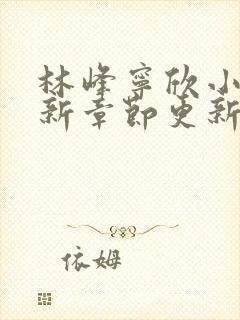 林峰寧欣小
新章節更新
依姆